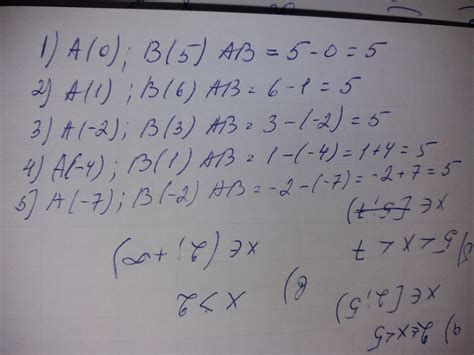 1) A(0); B(5) AB = 5-0 = 5
2) A(1); B(6) AB = 6-1 = 5
3) A(-2); B(3) AB = 3-(-2) = 5
4) A(-4); B(1) AB = 1-(-4) = 1+4 = 5
5) A(-7); B(-2) AB = -2-(-7) = -2+7 = 5
а) 2≤x<5
x∈[2;5)
б) x>2
x∈(2;+∞)
5<x<7
x∈